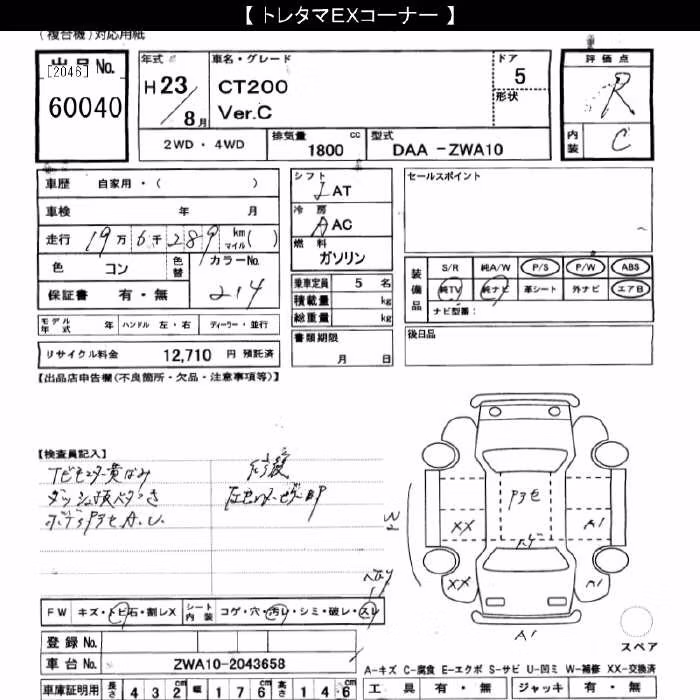 【 トレタマEXコーナー 】
(複合機)対応用紙
出品 No.
[2046]
60040
年式
H 23/8月
車名・グレード
CT200
Ver.C
ドア
5
形状
評価点
R
内装
C
2WD・4WD
排気量
1800 cc
型式
DAA -ZWA10
車歴 自家用・( )
車検 年 月
走行 19万6千289 km マイル ( )
色 コン
色替
カラーNo.
214
保証書 有・無
シフト
AT
冷房
AAC
燃料
ガソリン
乗車定員 5 名
積載量 kg
総重量 kg
書類期限
月 日
セールスポイント
装備品
S/R 純A/W P/S P/W ABS
純TV 純ナビ 革シート 外ナビ エアB
ナビ型番:
後日品
モデル年式 年 ハンドル 左・右 ディーラー・並行
リサイクル料金 12,710 円 預託済
【出品店申告欄(不良箇所・欠品・注意事項等)】
【検査員記入】
修復
XX
A1
XX
A1
A1
FW キズ・トビ石・割レX シート内装 コゲ・穴・汚レ・シミ・破レ・スレ
登録 No.
車台 No. ZWA10-2043658
車庫証明用 長さ 432cm 幅 176cm 高さ 146cm
スペア
A-キズ C-腐食 E-エクボ S-サビ U-凹ミ W-補修 XX-交換済
工具 有・無 ジャッキ 有・無